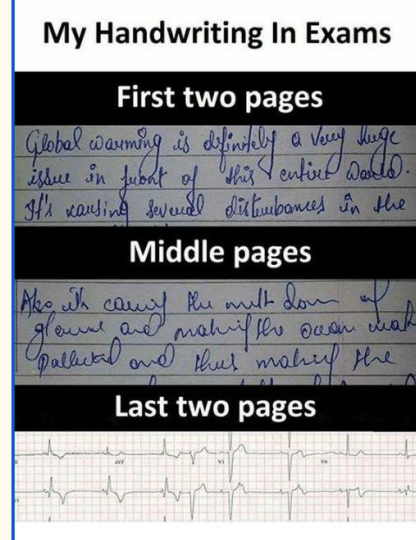 My Handwriting In Exams
First two pages
Global warming is definitely a very huge
issue in front of this entire World.
It's causing several disturbances in the
Middle pages
Also its causing the melt down of
and making the ocean
polluted and thus making the
Last two pages
aVF
V2